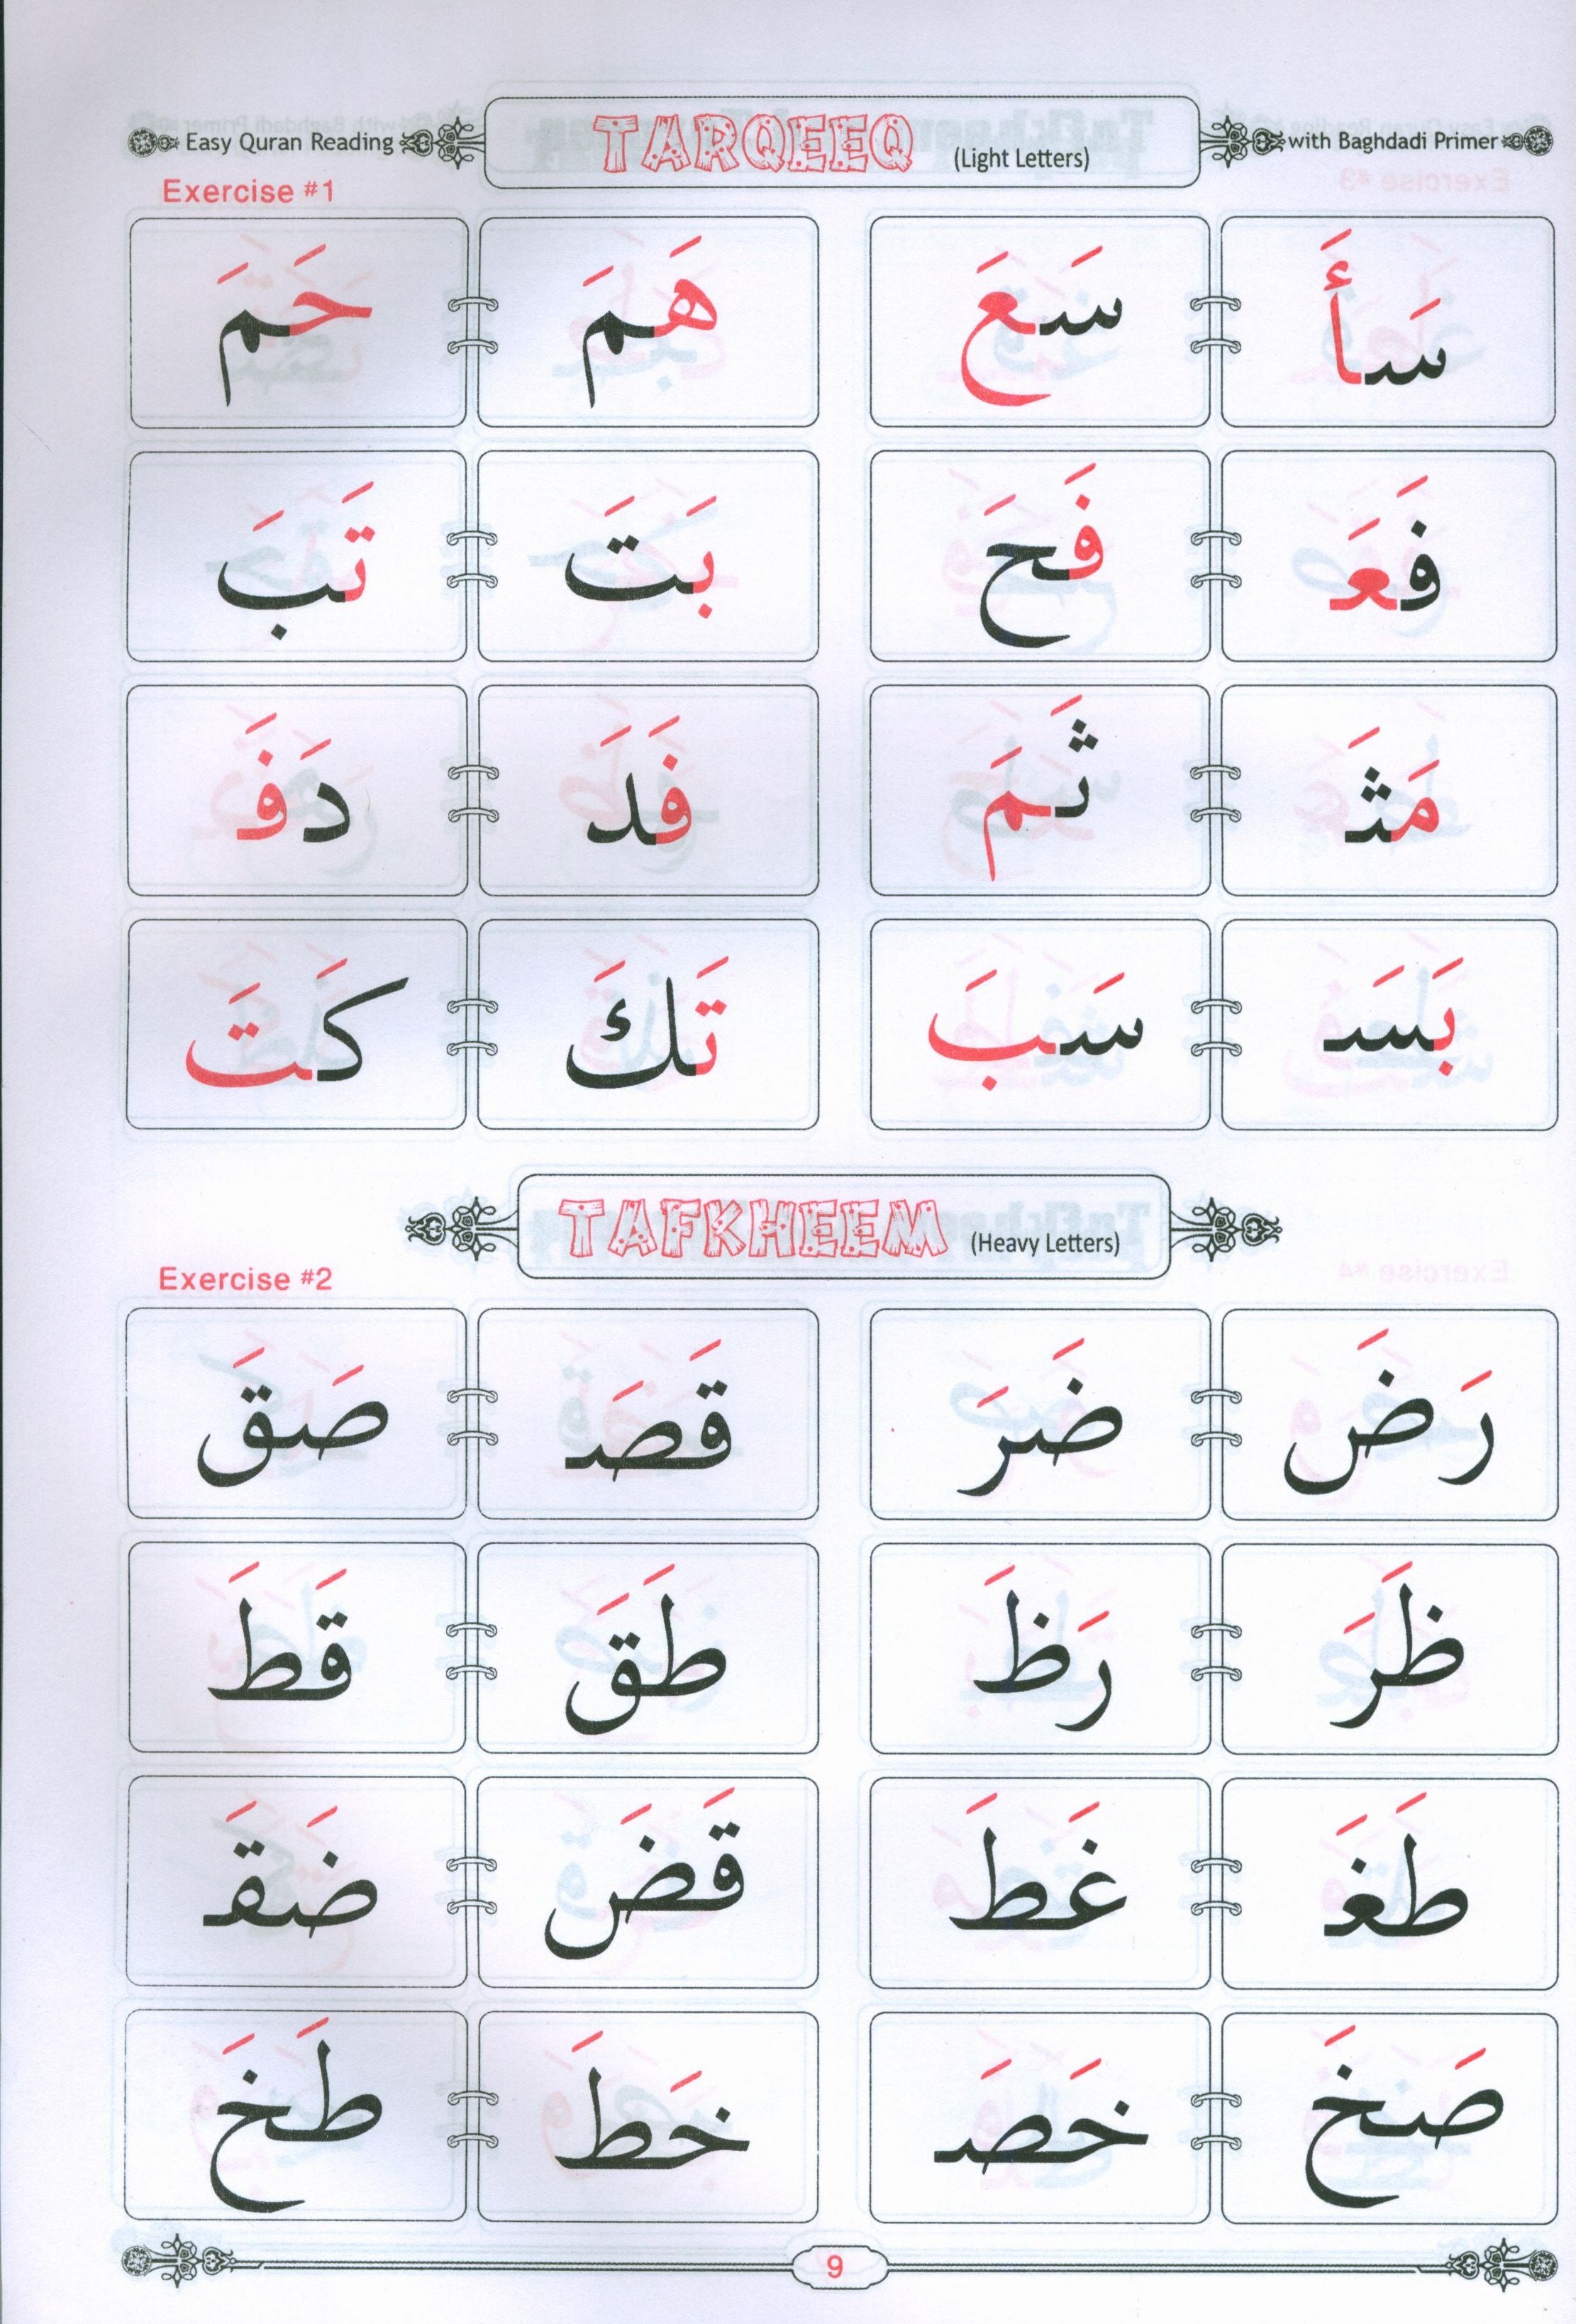 Easy Quran Reading TARQEEQ (Light Letters) with Baghdadi Primer
Exercise #1
سَأَ سَعَ هَمَ حَمَ
فَعَـ فَحَ بَتَ تَبَ
مَثَـ ثَمَ فَدَ دَفَ
بَسَـ سَبَ تَكَ كَتَ
TAFKHEEM (Heavy Letters)
Exercise #2
رَضَ ضَرَ قَصَـ صَقَ
ظَرَ رَظَ طَقَ قَطَ
طَغَـ غَطَ قَضَ ضَقَـ
صَخَ خَصَـ خَطَ طَخَ
9